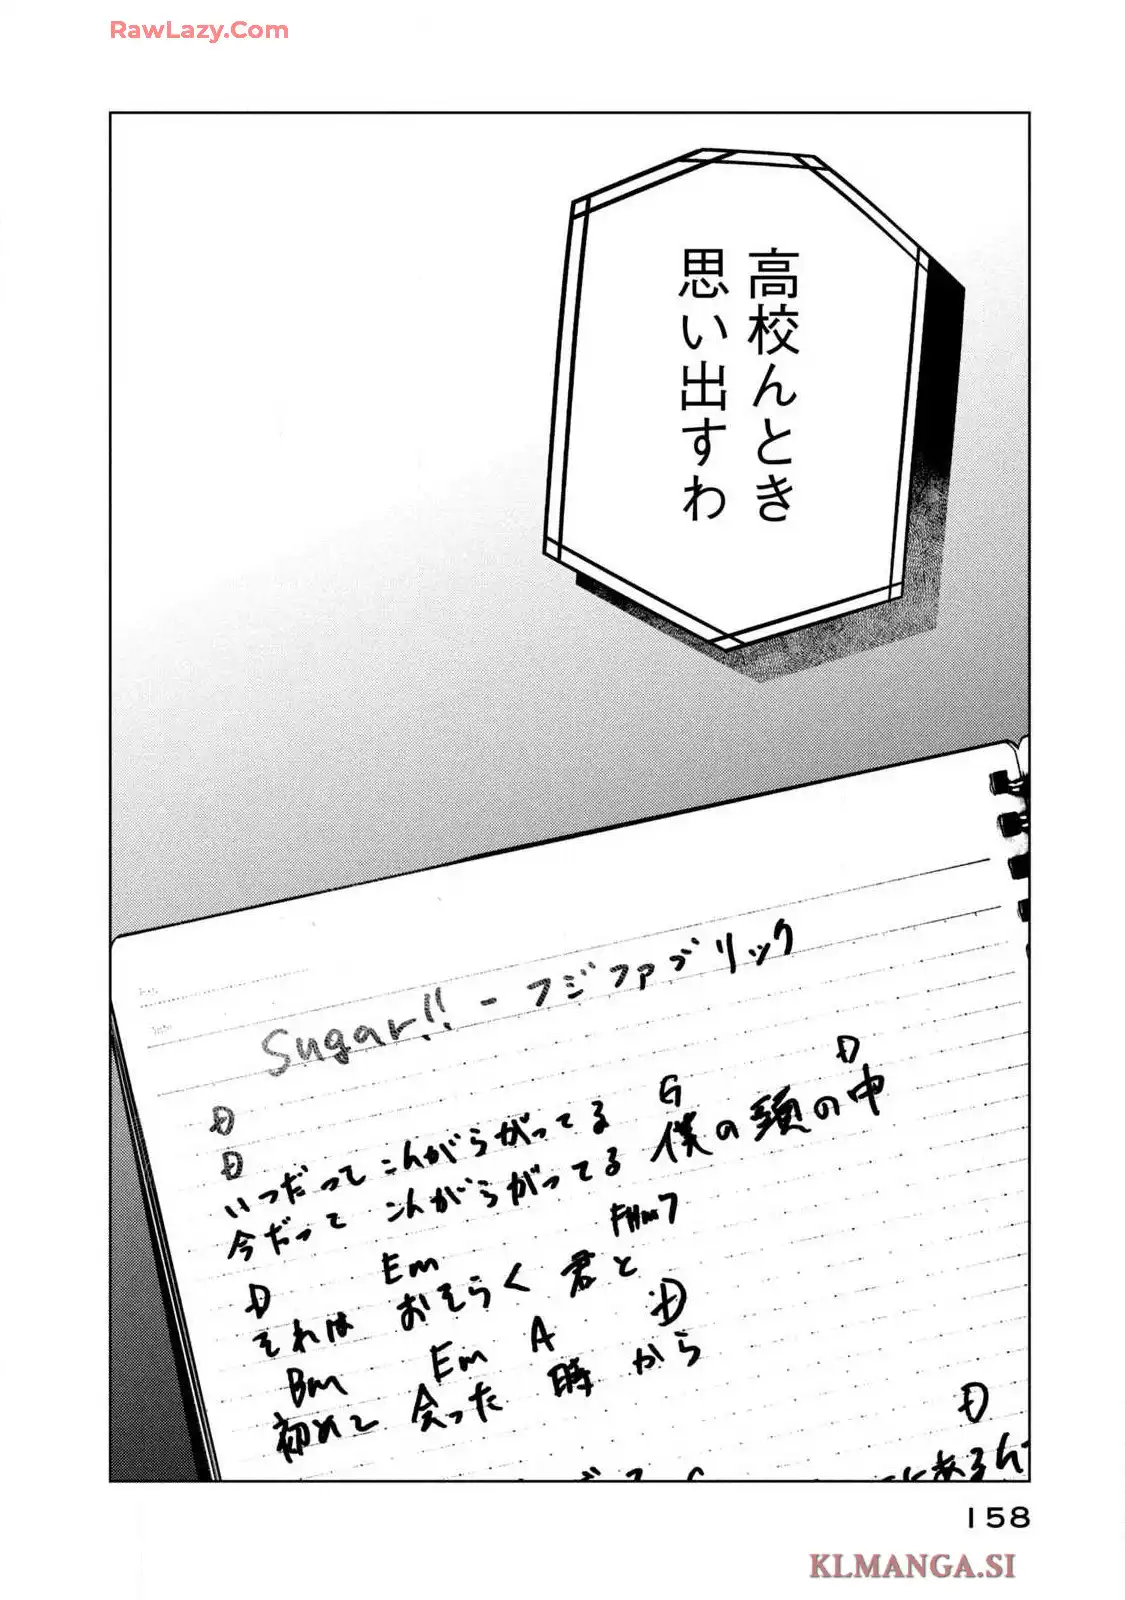 RawLazy.Com
高校んとき
思い出すわ
Sugar!! - フジファブリック
D
D G D
いつだって こんがらがってる
今だって こんがらがってる 僕の頭の中
D Em F#m7
それは おそらく 君と
Bm Em A D
初めて 会った 時 から
D
にあるん
158
KLMANGA.SI